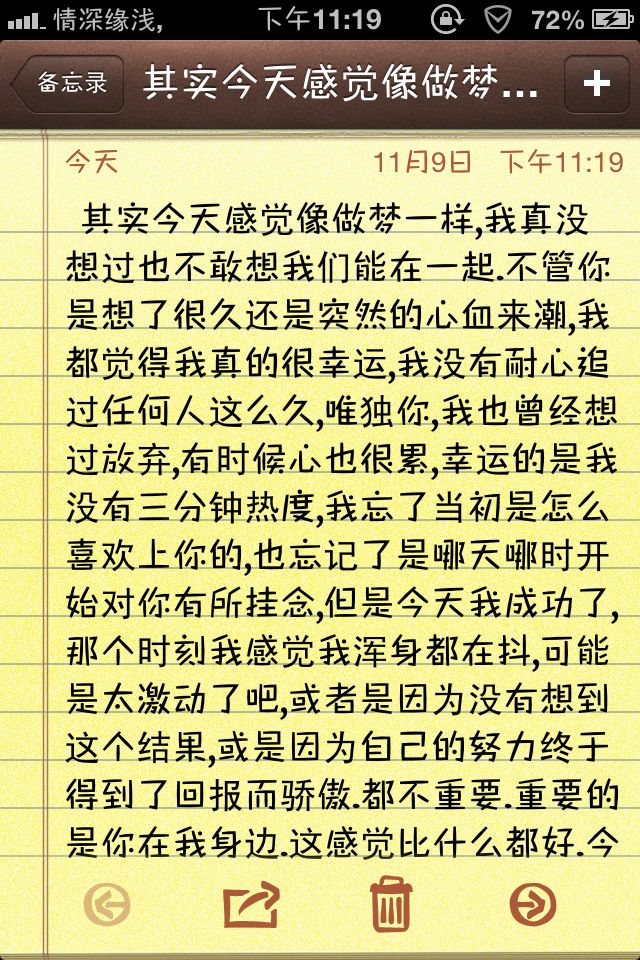 情深缘浅, 下午11:19 72%
备忘录 其实今天感觉像做梦... +
今天 11月9日 下午11:19
其实今天感觉像做梦一样,我真没
想过也不敢想我们能在一起.不管你
是想了很久还是突然的心血来潮,我
都觉得我真的很幸运,我没有耐心追
过任何人这么久,唯独你,我也曾经想
过放弃,有时候心也很累,幸运的是我
没有三分钟热度,我忘了当初是怎么
喜欢上你的,也忘记了是哪天哪时开
始对你有所挂念,但是今天我成功了,
那个时刻我感觉我浑身都在抖,可能
是太激动了吧,或者是因为没有想到
这个结果,或是因为自己的努力终于
得到了回报而骄傲.都不重要.重要的
是你在我身边.这感觉比什么都好.今